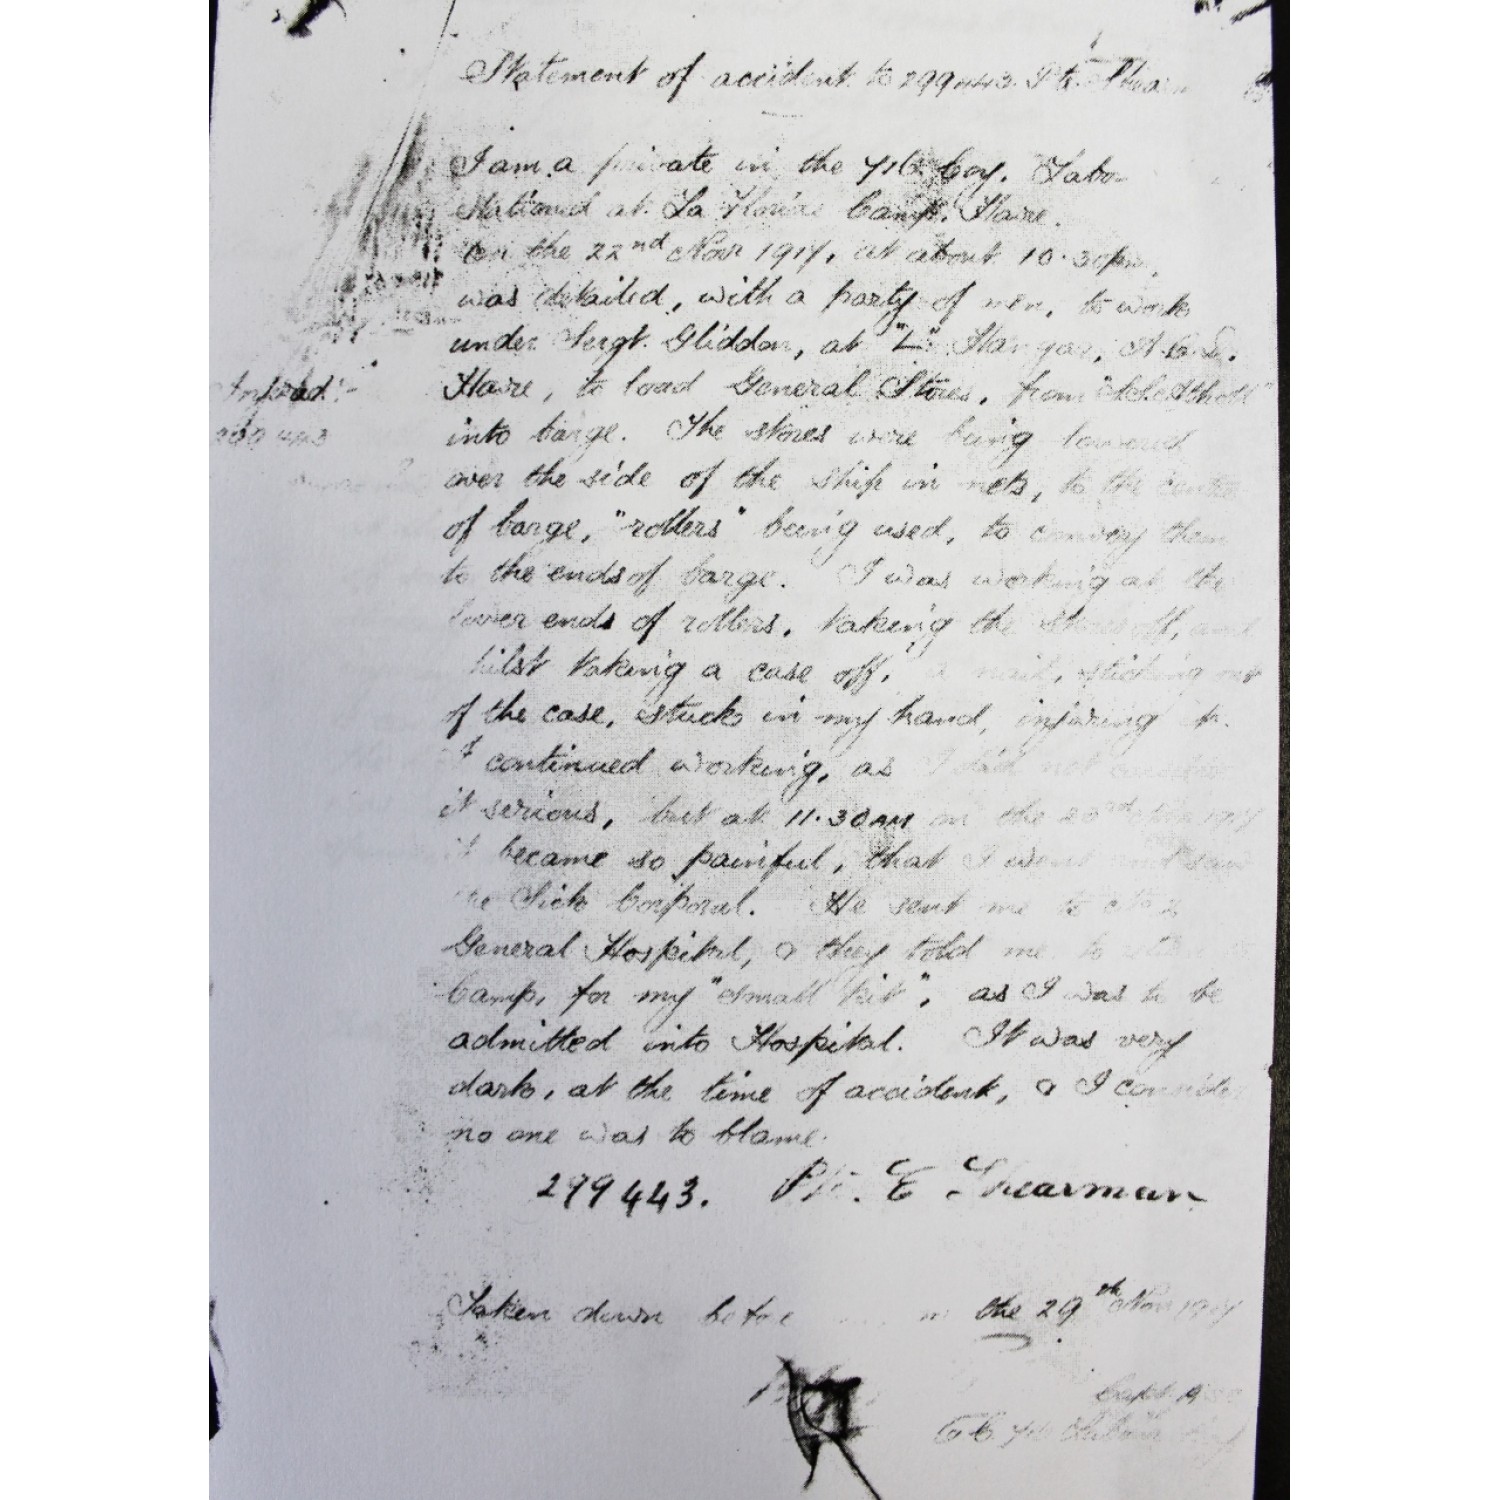 Statement of accident to 299443. Pte.
I am a private in the 71st Coy. Labo-
stationed at La Camp, Havre.
On the 22nd Nov 1917, at about 10.30pm,
was detailed, with a party of men, to work
under Sergt. Gliddon, at "L" Hangar,
Injured:-
Havre, to load General Stores, from
299443
into barge. The stores were being lowered
over the side of the ship in nets, to the centre
of barge, "rollers" being used, to convey them
to the ends of barge. I was working at the
lower ends of rollers, taking the stores off, and
hilst taking a case off, a nail, sticking out
of the case, stuck in my hand, injuring it.
I continued working, as I did not consider
it serious, but at 11.30AM on the 23rd Nov 1917
it became so painful, that I went and saw
the Sick Corporal. He sent me to No 2
General Hospital, & they told me to
Camp, for my "small kit", as I was to be
admitted into Hospital. It was very
dark, at the time of accident, & I consider
no one was to blame.
299443. Pte. E Shearman
Taken down before the 29th Nov 1917
Capt